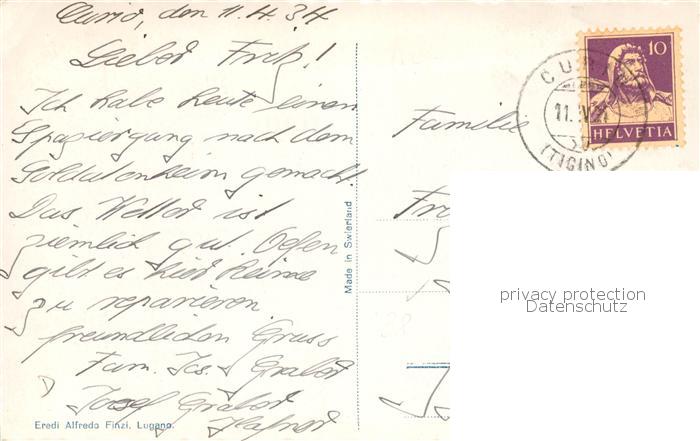 Curio, den 11.4.34
Lieber Fritz!
Ich habe heute einen
Spaziergang nach dem
Soldatenheim gemacht.
Das Wetter ist
ziemlich gut. Oefen
gibt es hier keine
zu reparieren
freundlichen Gruss
Fam. Jos. Graber
Josef Graber
Hafner
Eredi Alfredo Finzi, Lugano.
Made in Swierland.
Familie
10
HELVETIA
CURIO
11. IV. 34
(TICINO)
privacy protection
Datenschutz